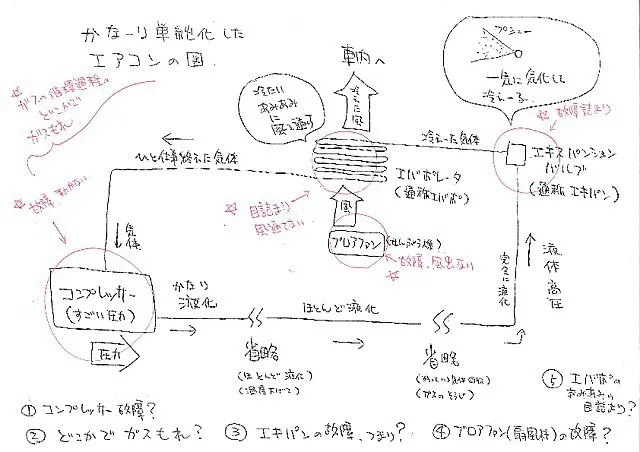 かなーり単純化した
エアコンの図.
車内へ
冷えた風
冷たい
あみあみ
に
風を通す
プシュー
一気に気化して
冷えーる.
☆ ガスの循環過程の
どこかで
ガスもれ
☆ 故障.動かない
ひと仕事終えた気体
冷えた気体
☆ 故障詰まり
エキスパンション
バルブ
(通称エキパン)
エバポレータ
(通称エバポ)
☆ 目詰まり
風通らない
風
ブロアファン
(せんぷう機)
故障、風出ない
☆
気体
コンプレッサー
(すごい圧力)
圧力
かなり
液化
ほとんど液化
完全に液化
液体
高圧
省略
(ほとんど液化)
(温度下げて)
省略
(ガスのそうじ)
① コンプレッサー故障?
② どこかでガスもれ?
③ エキパンの故障、つまり?
④ ブロアファン(扇風機)の故障?
⑤ エバポの
あみあみの
目詰まり?